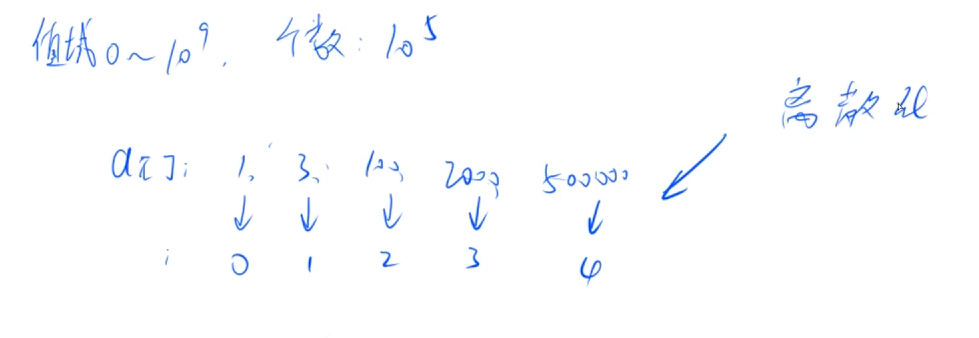 值域0~10⁹, 个数: 10⁵
离散化
a[]: 1, 3, 100, 2000, 500000
i 0 1 2 3 4